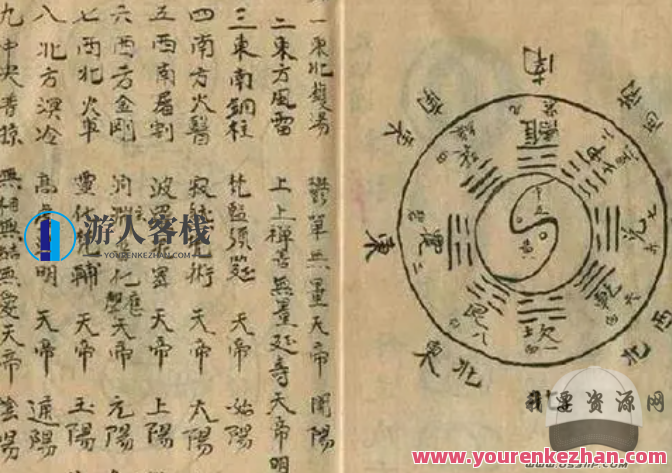 一東北鑊湯 鬱單無量天帝 開陽
二東方風雷 上上禪善無量延壽天帝 明
三東南銅柱 梵監須延 天帝 始陽
四南方火翳 寂然兜術 天帝 太陽
五西南屠割 波羅 天帝 上陽
六西方金剛 洞淵化應聲 天帝 元陽
七西北火車 靈化梵輔 天帝 玉陽
八北方溟冷 高虛明 天帝 通陽
九中央普掠 無想無結無愛天帝 陰陽
南
東南
西南
東
東北
西北
離
九
四
坤
二
震
三
兌
七
乾
六
艮
八
坎
一
游人客栈
WWW.YOURENKEZHAN.COM
我要资源网
www.yourenkezhan.com